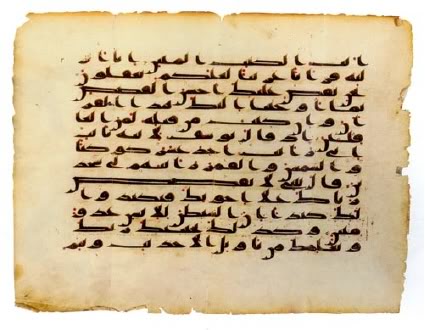 ايت الكتب المبين انا انز
لنه قرنا عربيا لعلكم تعقلون
نحن نقص عليك احسن القصص
بما اوحينا اليك هذا القر
ان وان كنت من قبله لمن الغا
فلين اذ قال يوسف لابيه يابت
اني رايت احد عشر كوكبا
والشمس والقمر رايتهم لي سجد
ين قال يبني لا تقصص
رياك على اخوتك فيكيدوا
لك كيدا ان الشيطن للانسن عدو
مبين وكذلك يجتبيك ربك
ويعلمك من تاويل الاحديث ويتم